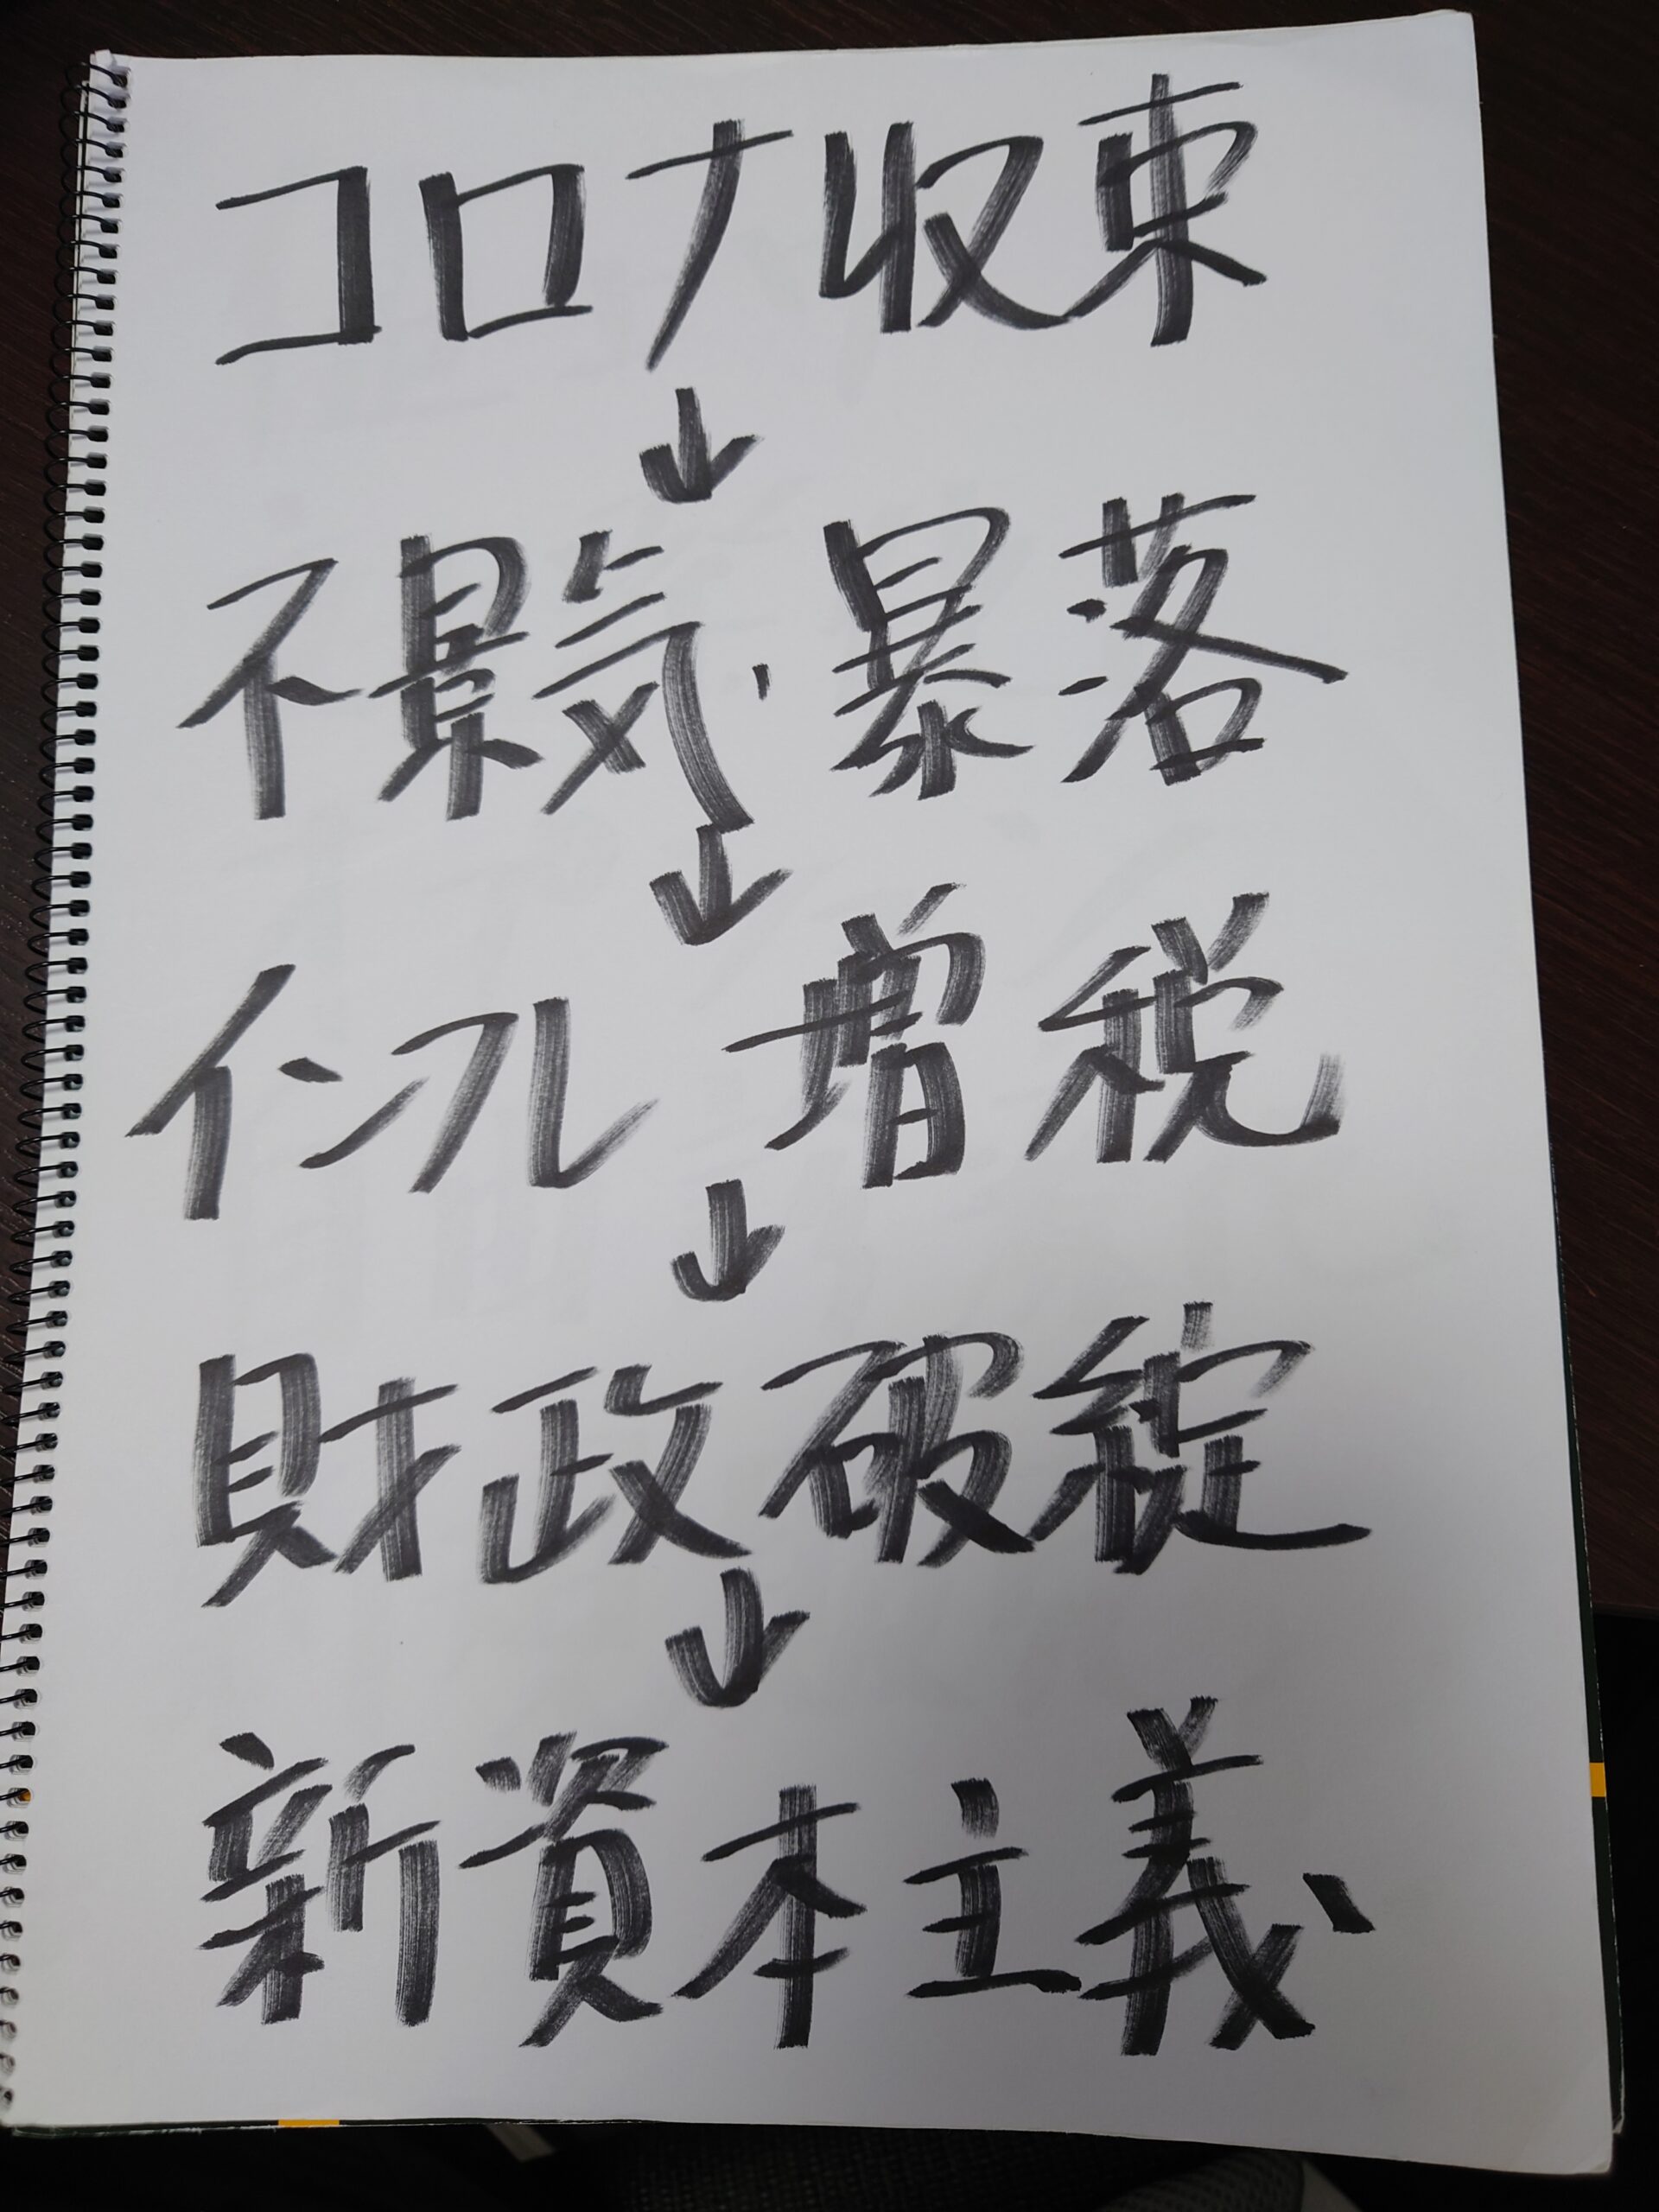 コロナ収束
↓
不景気・暴落
↓
インフレ 増税
↓
財政破綻
↓
新資本主義